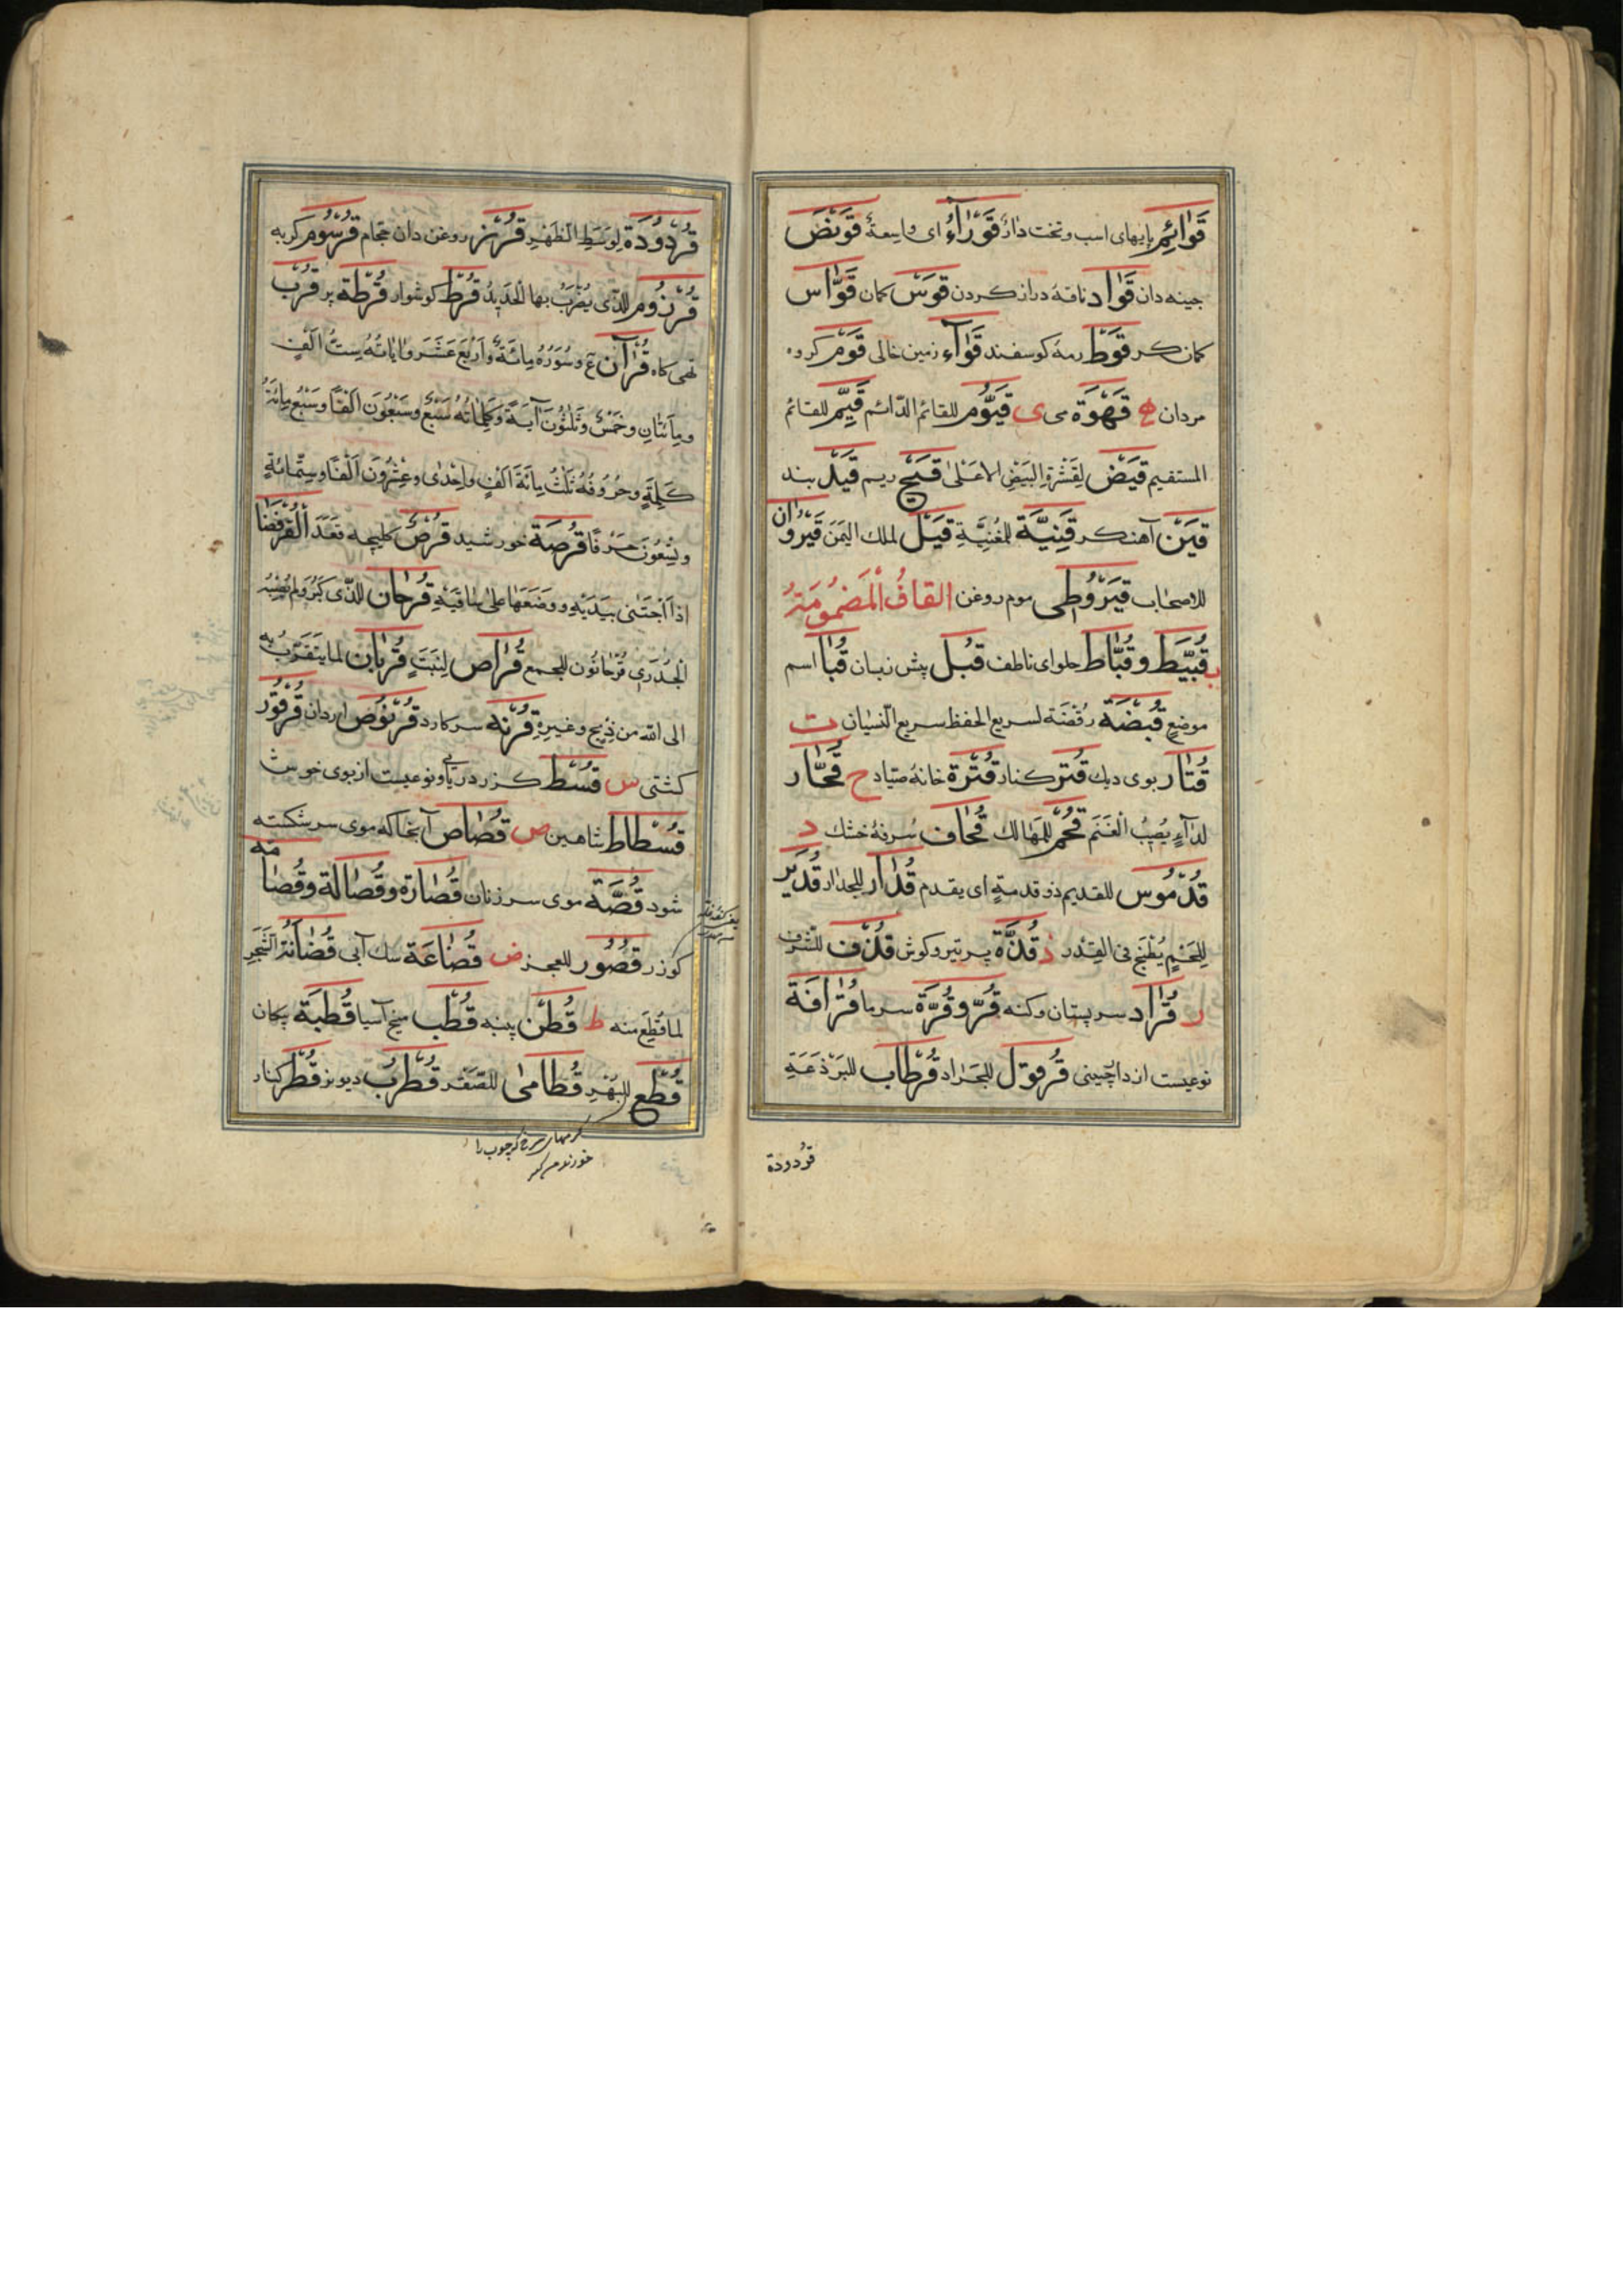 قَوَائِم پایهای اسب و تخت دار قَوْرَآءُ ای واسعة قَوْنَصْ
جینه دان قَوَاد ناقهٔ دراز کردن قَوْس کمان قَوَّاس
کمان کر قَوْط رمهٔ کوسفند قَوَآء زمین خالی قَوْم کروه
مردان ه قَهْوَة می ی قَیُّوم للقائم الدّائم قَیِّم للقائم
المستقیم قَیْض لِقَشْرَةِ البَیْضِ الاَعْلیٰ قَیْح ریم قَیْل بند
قَیْن آهنکر قَنِیَّة للمُغنِیَّةِ قَیْل لملك الیَمَن قَیْرُوَان
للاصحاب قَیْرُوطی موم روغن القافُ الْمَضمُومَةُ
ب قُبَّیْط و قُبَّاط حلوای ناطف قُبُل پیش زبان قُبَا اسم
موضع قُبْضَة رُفَضَة لسریع الحفظ سریع النّسیان ت
قُتَار بوی دیك قُتْر کنار قُتْرَة خانهٔ صیّاد ح قُحَّار
لدَآءٍ یُصِیْبُ الْغَنَم قُحَم للمَهَالك قُحَاف سُرفهٔ خشك د
قُدْمُوس للقدیم ذو قدمة ای یقدم قُدَار للجدار قُدَیْر
لِلَحْمٍ یُطْبَخ فی القِدْر ذ قُذَّة پر تیر و کوش قُذَف للشّرف
ر قُرَاد سر پستان و کنه قُرّ و قُرَّة سرما قُرَافَة
نوعیست از داچینی قُرْمُوْل للجَرَاد قُرْطَاب للبَرْذَعَةِ
قردودة
قُرْدُودَة لِوَسَطِ الظَهْرِ قُرْزُز روغن دان حجام قُرْسُوم کربه
قُرْزُوم للذّی یُضْرَبُ بها الْحَدِیْدُ قُرْط کوشوار قُرْطَة پر قُرْب
تهی کاه قُرْآن ع وسُوَرُهُ مِائَةٌ وَاَرْبَعَ عَشَرَ و ایَاتُهُ سِتُّ اَلْفٍ
ومِاَئتَانِ وخَمْسٌ وَثَلٰثُوْنَ آیَةً وَکَلِمَاتُهُ سَبْعٌ وسَبْعُوْنَ اَلْفًا وسَبْعُ مِائَةُ
کَلِمَةٍ وحُرُوفُهُ ثَلٰثُ مِائَةَ اَلْفٍ واِحْدٰی وعِشْرُوْنَ اَلْفًا وسِتّمائَةٍ
وتِسْعُوْنَ حَرْفًا قُرْصَة خورشید قُرْص کلیچه قَعَدَ الْقُرْفُصَا
اِذَا اَجْتَبٰی بِیَدَیْهِ ووَضَعَهَا عَلیٰ سَاقَیْهِ قُرْحَان للذّی کَبُرَ ولم یُصِبْهُ
الْجُدَرِی قُرْحَانُون للجمع قُرَّاص لِنَبَتٍ قُرْبَان لما یتقَرّبُ بِه
الی الله من ذِبْحٍ وغیرِهِ قُرْنَه سر کارد قُرْنُوص اردان قُرْقُوْر
کشتی س قُسْط کزر دریایی ونوعیست از بوی خوش
قُسْطَاط شاهین ص قُصَاص آنجا که موی سر شکسته
شود قُصَّة موی سر زنان قُصَارَة وقُصَالَة وقُصَامَه
کوزر قُصُوْر للعجز ض قُضَاعَة سك آبی قُضَابَةُ الشَّجَرِ
لما قُطِعَ منه ط قُطْن پنبه قُطْب میخ آسیا قُطْبَة پیکان
قُطْع للبُهْرِ قُطَامیّ للصَقْر قُطْرُب دیو نر قُطْر کنار